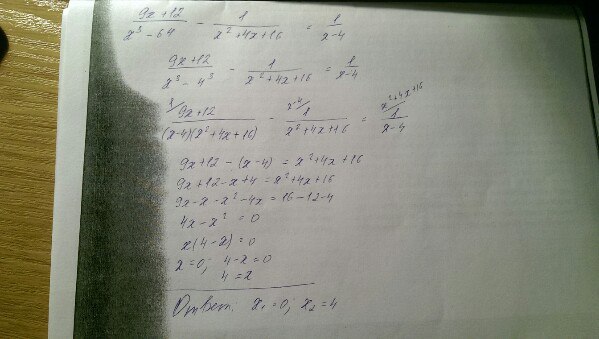 (9x+12)/(x³-64) - 1/(x²+4x+16) = 1/(x-4)
(9x+12)/(x³-4³) - 1/(x²+4x+16) = 1/(x-4)
¹/ (9x+12)/((x-4)(x²+4x+16)) - ˣ⁻⁴/ 1/(x²+4x+16) = ˣ²⁺⁴ˣ⁺¹⁶/ 1/(x-4)
9x+12-(x-4) = x²+4x+16
9x+12-x+4 = x²+4x+16
9x-x-x²-4x = 16-12-4
4x-x² = 0
x(4-x)=0
x=0; 4-x=0
4=x
Ответ: x₁=0; x₂=4